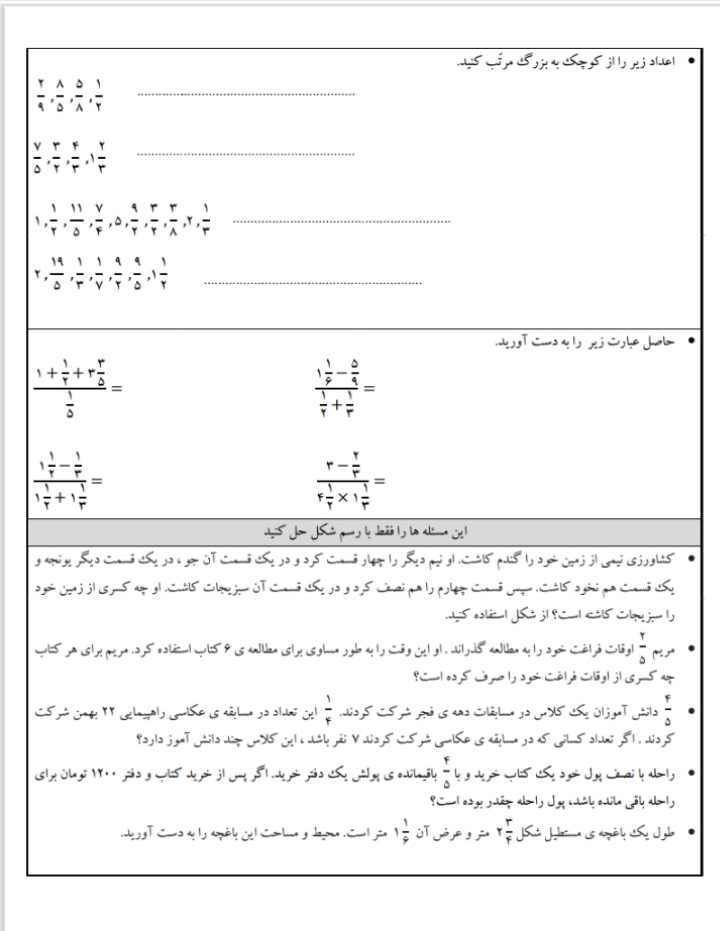 • اعداد زیر را از کوچک به بزرگ مرتّب کنید.
۲/۹ , ۸/۵ , ۵/۸ , ۱/۲ ........................................
۷/۵ , ۳/۲ , ۴/۳ , ۱ ۲/۳ ........................................
۱ , ۱/۲ , ۱۱/۵ , ۷/۴ , ۵ , ۹/۲ , ۳/۲ , ۳/۸ , ۲ , ۱/۳ ........................................
۲ , ۱۹/۵ , ۱/۳ , ۱/۷ , ۹/۲ , ۹/۵ , ۱ ۱/۲ ........................................
• حاصل عبارت زیر را به دست آورید.
(۱ + ۱/۲ + ۳ ۳/۵) / (۱/۵) = (۱ ۱/۶ − ۵/۹) / (۱/۲ + ۱/۳) =
(۱ ۱/۲ − ۱/۳) / (۱ ۱/۲ + ۱ ۱/۳) = (۳ − ۲/۳) / (۴ ۱/۲ × ۱ ۱/۳) =
این مسئله ها را فقط با رسم شکل حل کنید
• کشاورزی نیمی از زمین خود را گندم کاشت. او نیم دیگر را چهار قسمت کرد و در یک قسمت آن جو ، در یک قسمت دیگر یونجه و
یک قسمت هم نخود کاشت. سپس قسمت چهارم را هم نصف کرد و در یک قسمت آن سبزیجات کاشت. او چه کسری از زمین خود
را سبزیجات کاشته است؟ از شکل استفاده کنید.
• مریم ۲/۵ اوقات فراغت خود را به مطالعه گذراند . او این وقت را به طور مساوی برای مطالعه ی ۶ کتاب استفاده کرد. مریم برای هر کتاب
چه کسری از اوقات فراغت خود را صرف کرده است؟
• ۴/۵ دانش آموزان یک کلاس در مسابقات دهه ی فجر شرکت کردند. ۱/۴ این تعداد در مسابقه ی عکاسی راهپیمایی ۲۲ بهمن شرکت
کردند . اگر تعداد کسانی که در مسابقه ی عکاسی شرکت کردند ۷ نفر باشد ، این کلاس چند دانش آموز دارد؟
• راحله با نصف پول خود یک کتاب خرید و با ۴/۵ باقیمانده ی پولش یک دفتر خرید. اگر پس از خرید کتاب و دفتر ۱۲۰۰ تومان برای
راحله باقی مانده باشد، پول راحله چقدر بوده است؟
• طول یک باغچه ی مستطیل شکل ۲ ۳/۴ متر و عرض آن ۱ ۱/۶ متر است. محیط و مساحت این باغچه را به دست آورید.